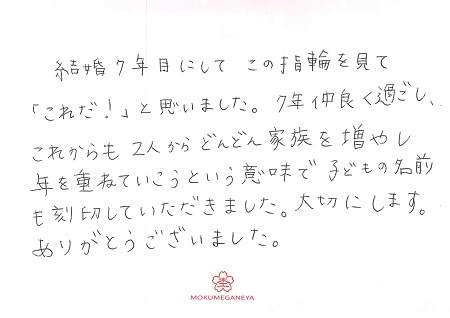 結婚7年目にして この指輪を見て
「これだ!」と思いました。7年仲良く過ごし、
これからも 2人から どんどん 家族を 増やし
年を重ねていこうという意味で 子どもの名前
も刻印していただきました。大切にします。
ありがとうございました。
MOKUMEGANEYA